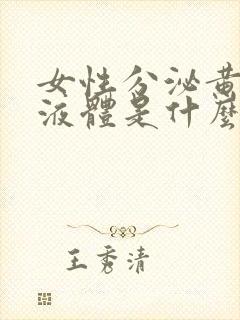 女性分泌黄
液體是什麼
王秀清